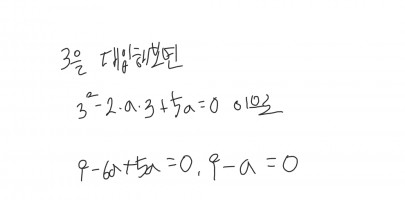 3을 대입해보면
3² - 2·a·3 + 5a = 0 이므로
9 - 6a + 5a = 0, 9 - a = 0